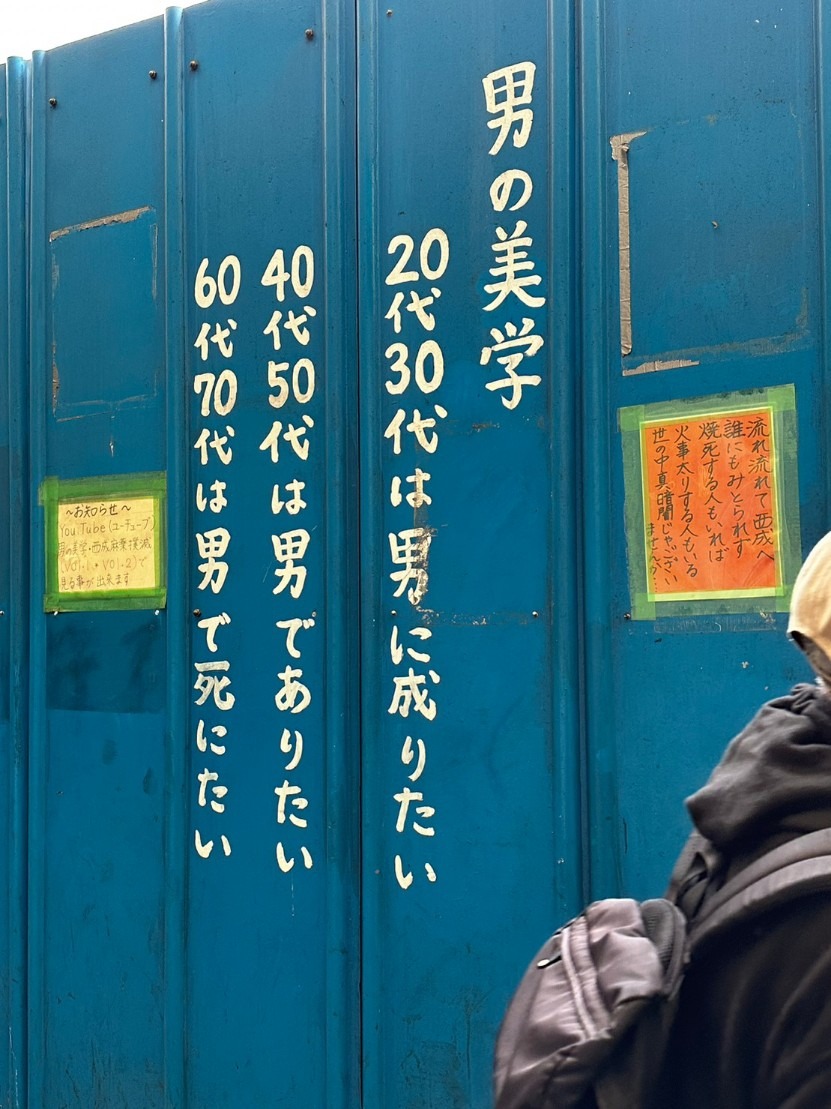 男の美学
20代30代は男に成りたい
40代50代は男でありたい
60代70代は男で死にたい
流れ流れて西成へ
誰にもみとられず
焼死する人もいれば
火事太りする人もいる
世の中真暗闇じゃござい
ませんか…
～お知らせ～
You Tube(ユーチューブ)
男の美学・西成麻薬撲滅
(VOl.1・VOl.2)で
見る事が出来ます